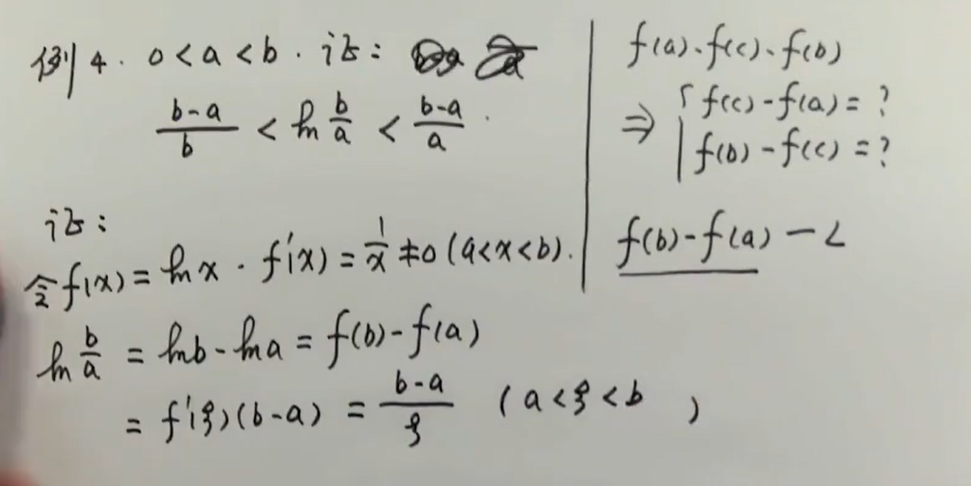 例4. 0<a<b. 证:
(b-a)/b < ln b/a < (b-a)/a.
证:
令f(x)=lnx. f'(x)=1/x≠0 (a<x<b).
ln b/a = lnb-lna = f(b)-f(a)
= f'(ξ)(b-a) = (b-a)/ξ (a<ξ<b )
f(a).f(c).f(b)
⇒ { f(c)-f(a)=?
f(b)-f(c)=?
f(b)-f(a) — L